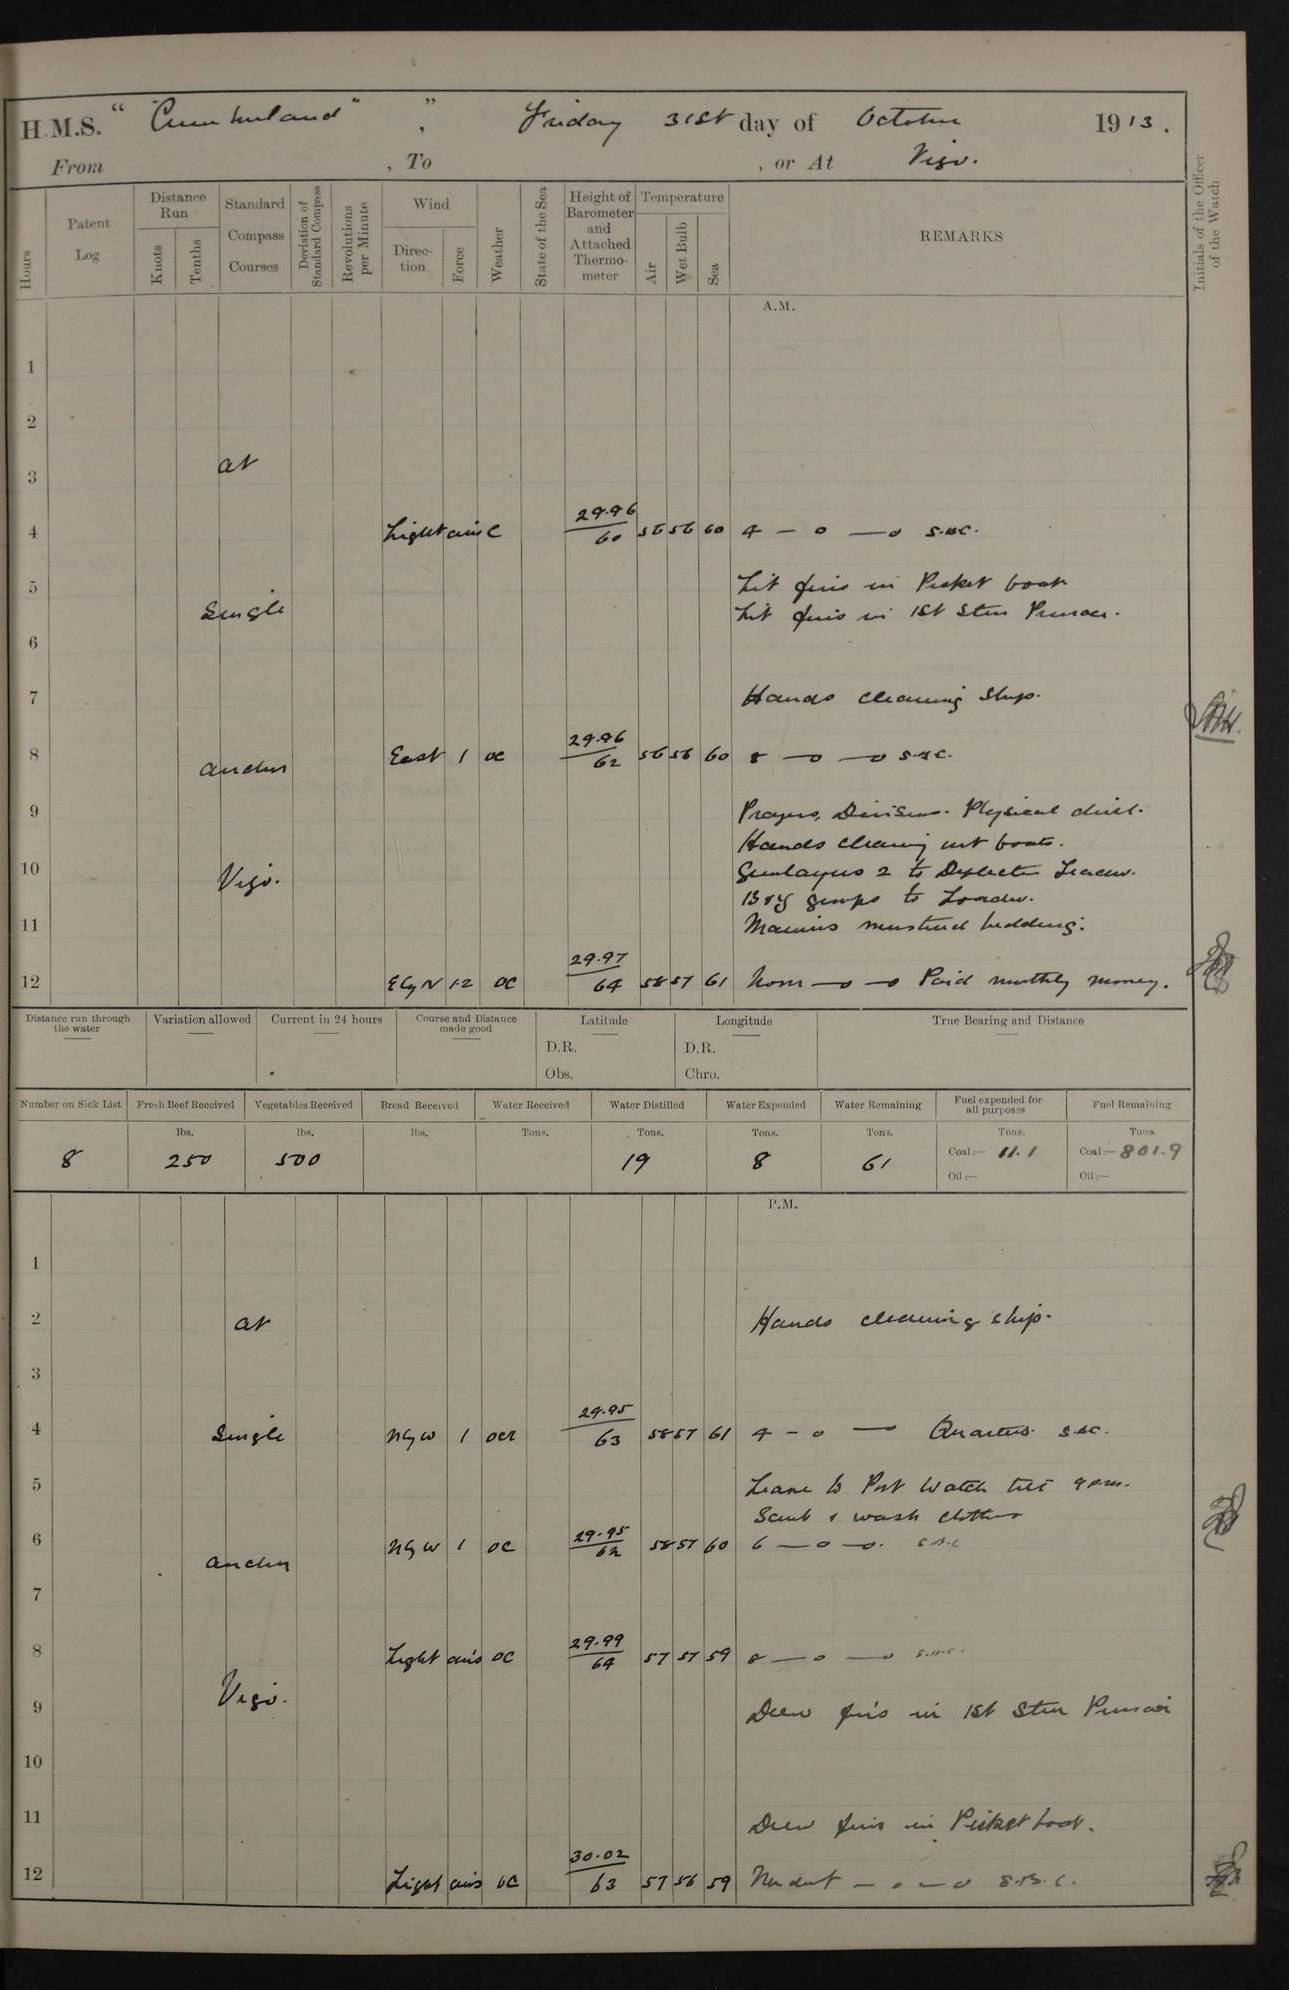 H.M.S. "Cumberland", Friday 31st day of October 1913.
From , To , or At Vigo.
Hours
Patent Log
Distance Run
Knots
Tenths
Standard Compass Courses
Deviation of Standard Compass
Revolutions per Minute
Wind
Direction
Force
Weather
State of the Sea
Height of Barometer and Attached Thermometer
Temperature
Air
Wet Bulb
Sea
REMARKS
Initials of the Officer of the Watch
A.M.
1
2
3 at
4 Light airs C 29.96 60 56 56 60 4 — o — o S.B.C.
5 Lit fires in Picket boat
Single Lit fires in 1st Stm Pinnace.
6
7 Hands cleaning Ship.
8 East 1 oc 29.96 62 56 56 60 8 — o — o S.B.C.
anchor
9 Prayers, Divisions. Physical drill.
Hands clearing out boats.
10 Vigo. Gunlayers 2 to Deflection Teacher.
B & Y groups to Loader.
11 Marines mustered bedding.
12 E by N 1-2 oc 29.97 64 58 57 61 Noon — o — o Paid monthly money.
Distance run through the water
Variation allowed
Current in 24 hours
Course and Distance made good
Latitude
Longitude
True Bearing and Distance
D.R. D.R.
Obs. Chro.
Number on Sick List
Fresh Beef Received
Vegetables Received
Bread Received
Water Received
Water Distilled
Water Expended
Water Remaining
Fuel expended for all purposes
Fuel Remaining
lbs. lbs. lbs. Tons. Tons. Tons. Tons. Tons. Tons.
8 250 500 19 8 61 Coal:— 11.1 Coal:— 801.9
Oil:— Oil:—
P.M.
1
2 at Hands cleaning ship.
3
4 Single N by W 1 ocr 29.95 63 58 57 61 4 — o — Quarters. S.B.C.
5 Leave to Port Watch till 9 p.m.
Scrub & wash clothes
6 N by W 1 oc 29.95 62 58 57 60 6 — o — o. S.B.C
anchor
7
8 Light airs oc 29.99 64 57 57 59 8 — o — o S.B.C.
Vigo.
9 Drew fires in 1st Stm Pinnace
10
11 Drew fires in Picket boat.
12 Light airs oc 30.02 63 57 56 59 — o — o S.B.C.